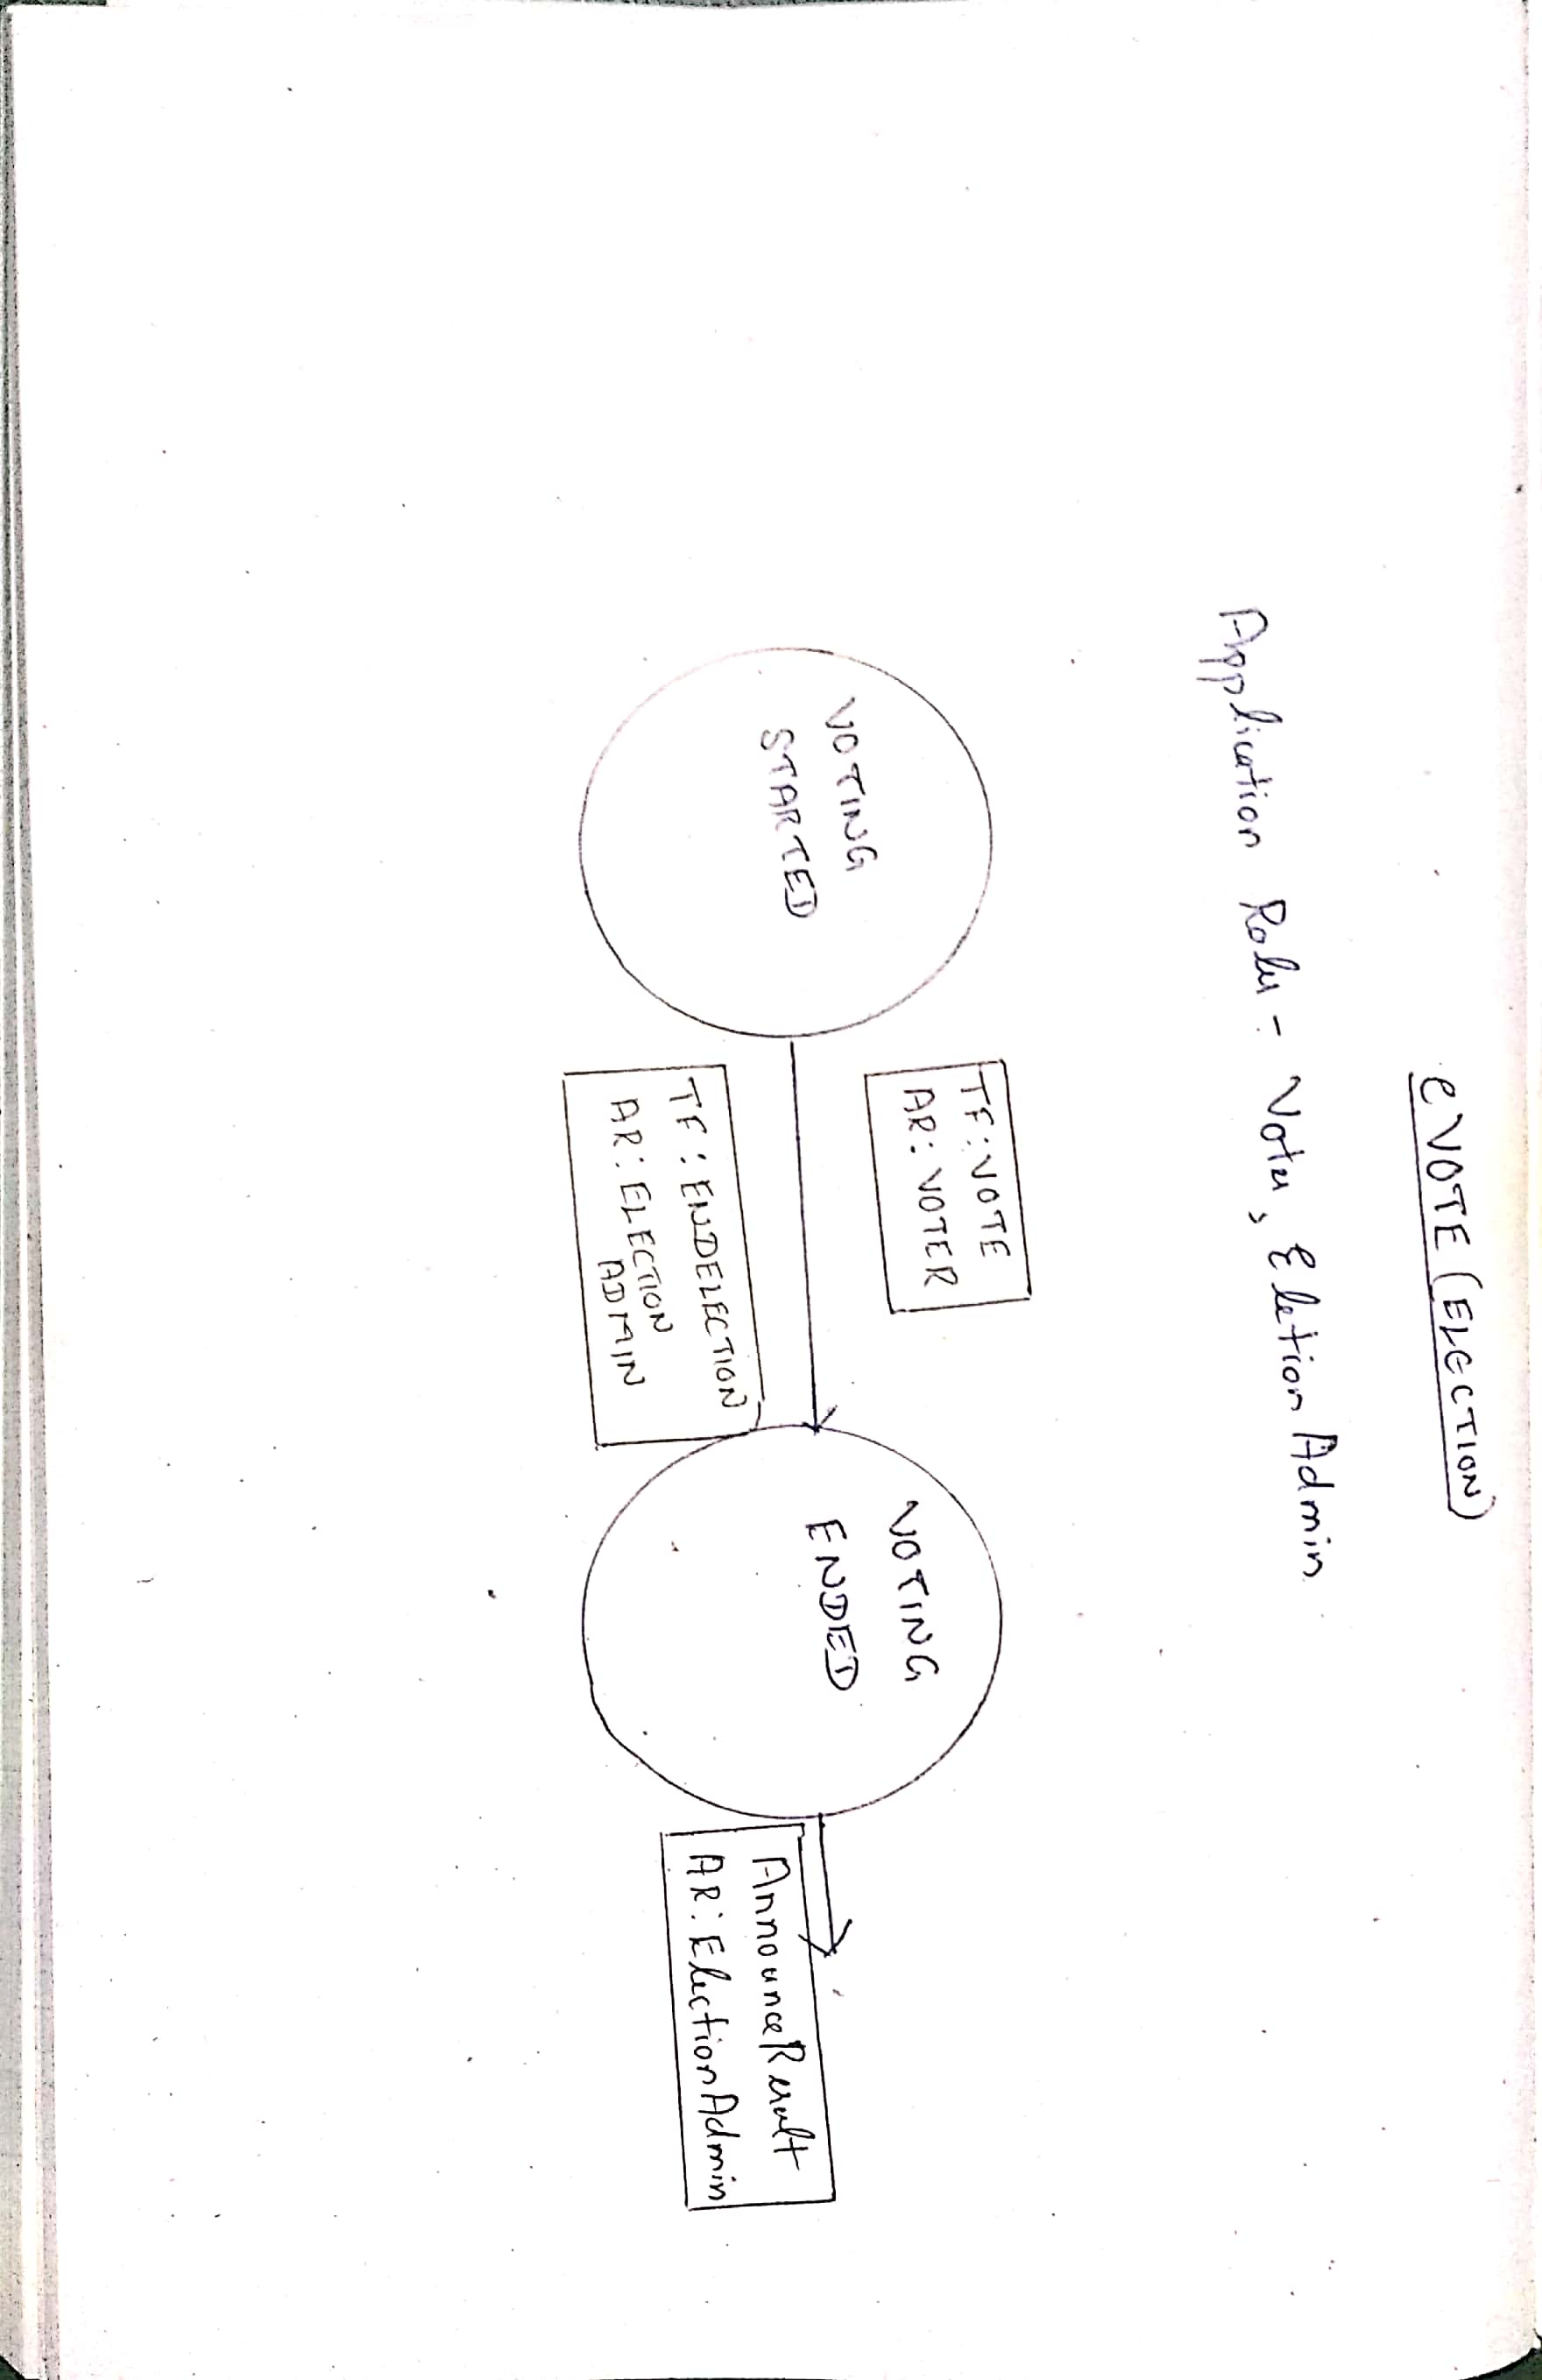 eVOTE (ELECTION)
Application Roles - Voter, Eletion Admin
VOTING
STARTED
TF: VOTE
AR: VOTER
TF: ENDELECTION
AR: ELECTION
ADMIN
VOTING
ENDED
AnnounceResult
AR: ElectionAdmin